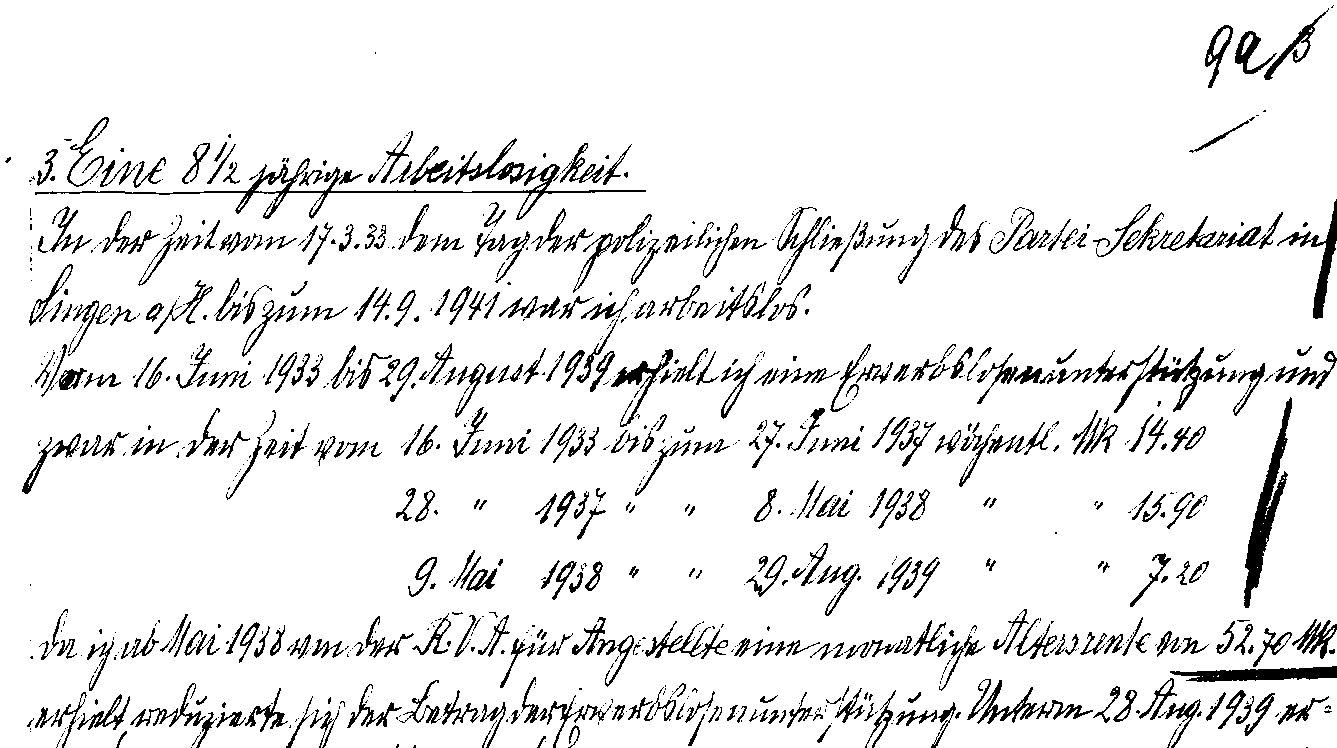 9a/3
3. Eine 8 1/2 jährige Arbeitslosigkeit.
In der Zeit vom 17.3.33 dem Tag der polizeilichen Schließung des Partei-Sekretariat in
Singen a/H. bis zum 14.9.1941 war ich arbeitslos.
Vom 16. Juni 1933 bis 29. August 1939 erhielt ich eine Erwerbslosenunterstützung und
zwar in der Zeit vom 16. Juni 1933 bis zum 27. Juni 1937 wöchentl. Mk 14.40
28. " 1937 " " 8. Mai 1938 " " 15.90
9. Mai 1938 " " 29. Aug. 1939 " " 7.20
da ich ab Mai 1938 von der R.V.A. für Angestellte eine monatliche Altersrente von 52.70 Mk.
erhielt, reduzierte sich der Betrag der Erwerbslosenunterstützung. Unterm 28. Aug. 1939 er=